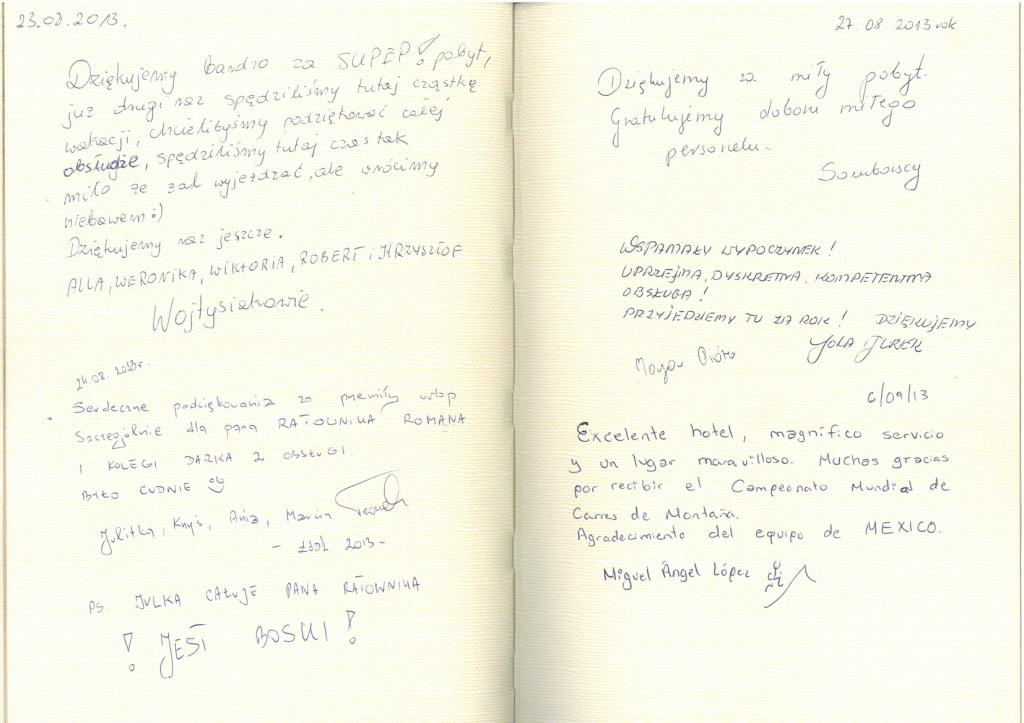 23.08.2013.
Dziękujemy bardzo za SUPER! pobyt,
już drugi raz spędziliśmy tutaj cząstkę
wakacji, chcielibyśmy podziękować całej
obsłudze, spędziliśmy tutaj czas tak
miło że żal wyjeżdżać, ale wrócimy
niebawem :)
Dziękujemy raz jeszcze.
ALLA, WERONIKA, WIKTORIA, ROBERT i KRZYSZTOF
Wojtysiakowie.
24.08.2013r.
Serdeczne podziękowania za przemiły urlop
Szczególnie dla pana RATOWNIKA ROMANA
I KOLEGI DARKA Z OBSŁUGI.
BYŁO CUDNIE
Julitka, Krzyś, Ania, Marcin
- Łódź 2013 -
PS. JULKA CAŁUJE PANA RATOWNIKA
! JEST BOSKI !
27.08.2013 rok
Dziękujemy za miły pobyt.
Gratulujemy doboru miłego
personelu..
WSPANIAŁY WYPOCZYNEK!
UPRZEJMA, DYSKRETNA, KOMPETENTNA
OBSŁUGA!
PRZYJEDZIEMY TU ZA ROK! DZIĘKUJEMY
JOLA i JUREK
6/09/13
Excelente hotel, magnífico servicio
y un lugar maravilloso. Muchas gracias
por recibir el Campeonato Mundial de
Carres de Montaña.
Agradecimiento del equipo de MEXICO.
Miguel Ángel López